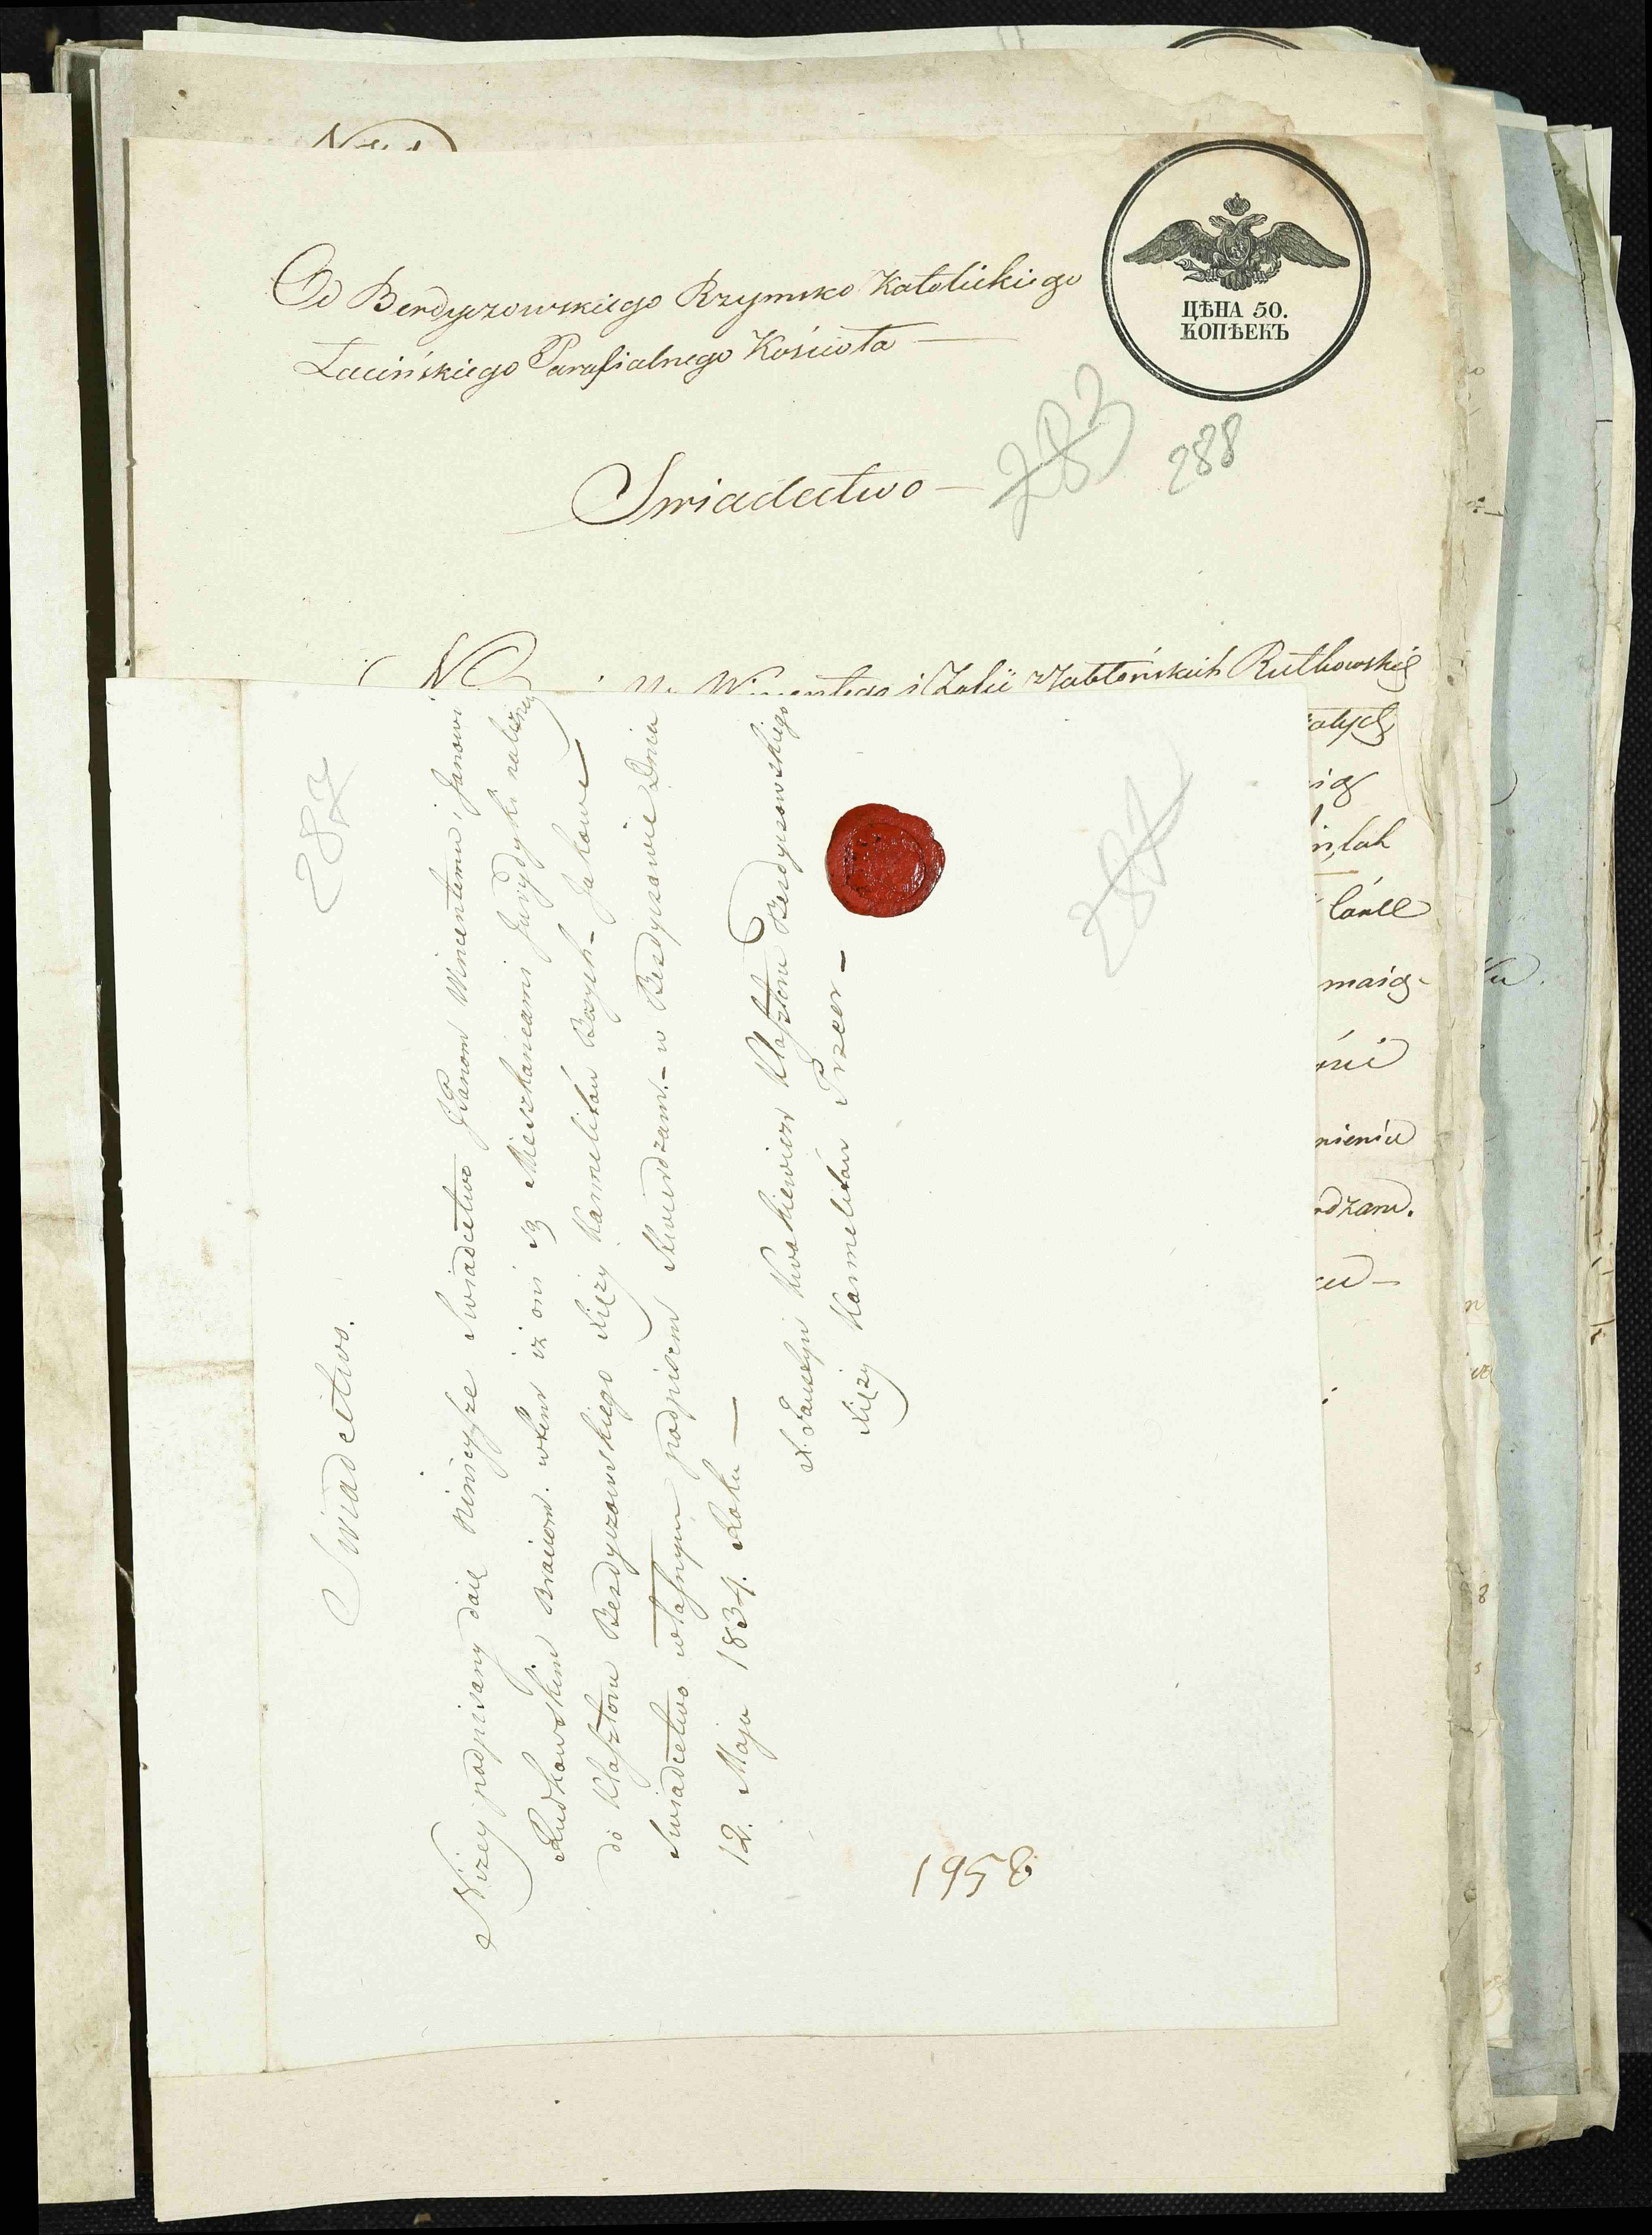 Od Berdyczowskiego Rzymsko Katolickiego
Łacińskiego Parafialnego Kościoła —
ЦѢНА 50.
КОПѢЕКЪ
Swiadectwo —
283
288
i Zofii z Jabłońskich Rutkowskich
maią
nieniu
dzam.
287
287
Swiadectwo.
Niżey podpisany daię ninieysze Swiadectwo JPanom Wincentemu, Janowi
Rudkowskim Braciom. wtem iż oni są Mieszkańcami Juryzdyki należney
do Klasztoru Berdyczowskiego Xięży Karmelitów Bosych - Jakowe
Swiadectwo własnym podpisem stwierdzam. - w Berdyczowie Dnia
12. Maja 1834. Roku —
X. Faustyn Kwakiewicz Klasztoru Berdyczowskiego
Xięży Karmelitów Przeor -
1958